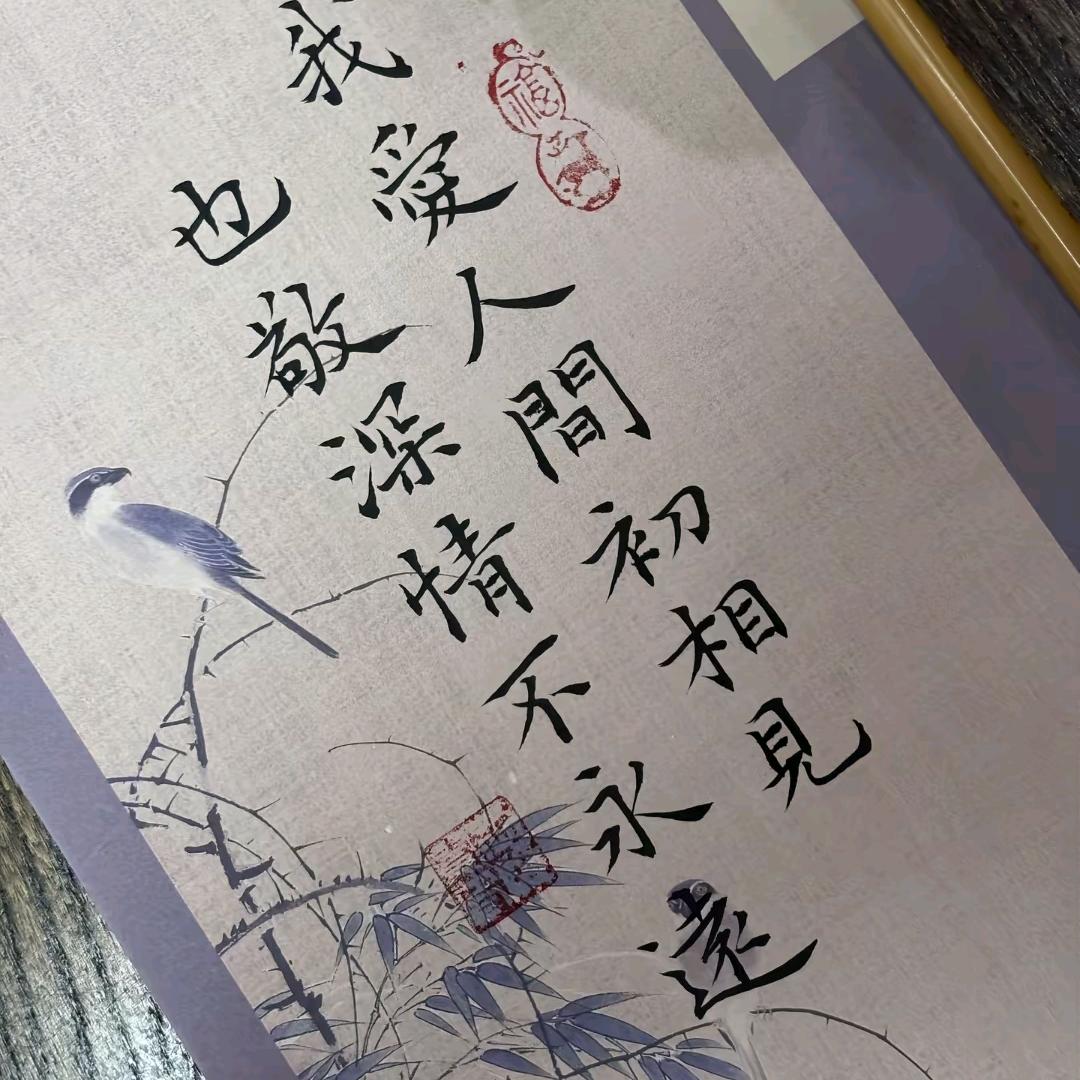 我愛人間初相見
也敬深情不永遠
福